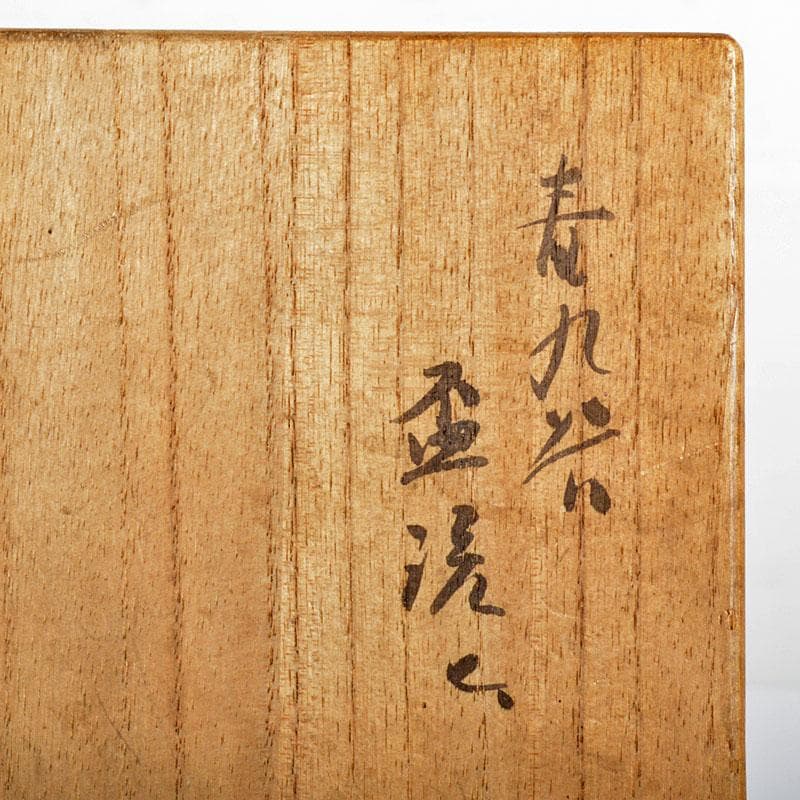 青九谷
盃洗